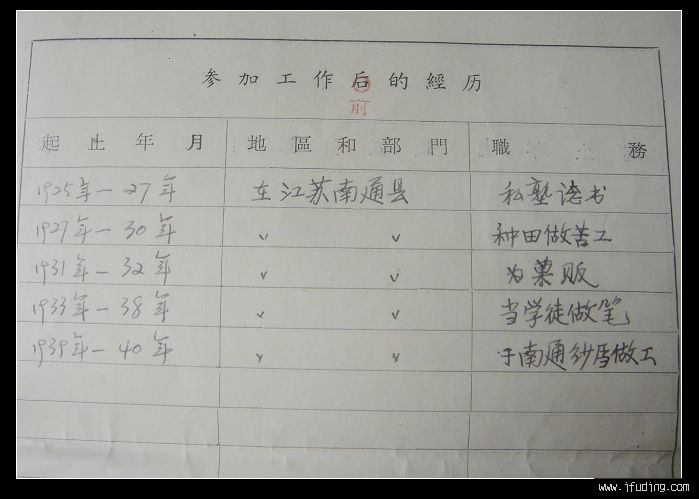 参加工作后的經历
前
起止年月 地區和部門 職務
1925年—27年 在江苏南通县 私塾读书
1927年—30年 〃 〃 种田做苦工
1931年—32年 〃 〃 为菓贩
1933年—38年 〃 〃 当学徒做笔
1939年—40年 〃 〃 于南通纱厂做工
www.jfuding.com